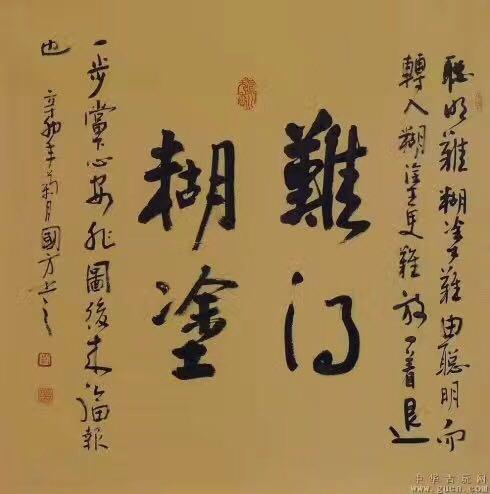 聰明難糊塗難由聰明而
轉入糊塗更難放一著退
難得
糊塗
一步當下心安非圖後来福報
也 辛卯年菊月國方
中华古玩网
www.gucn.com